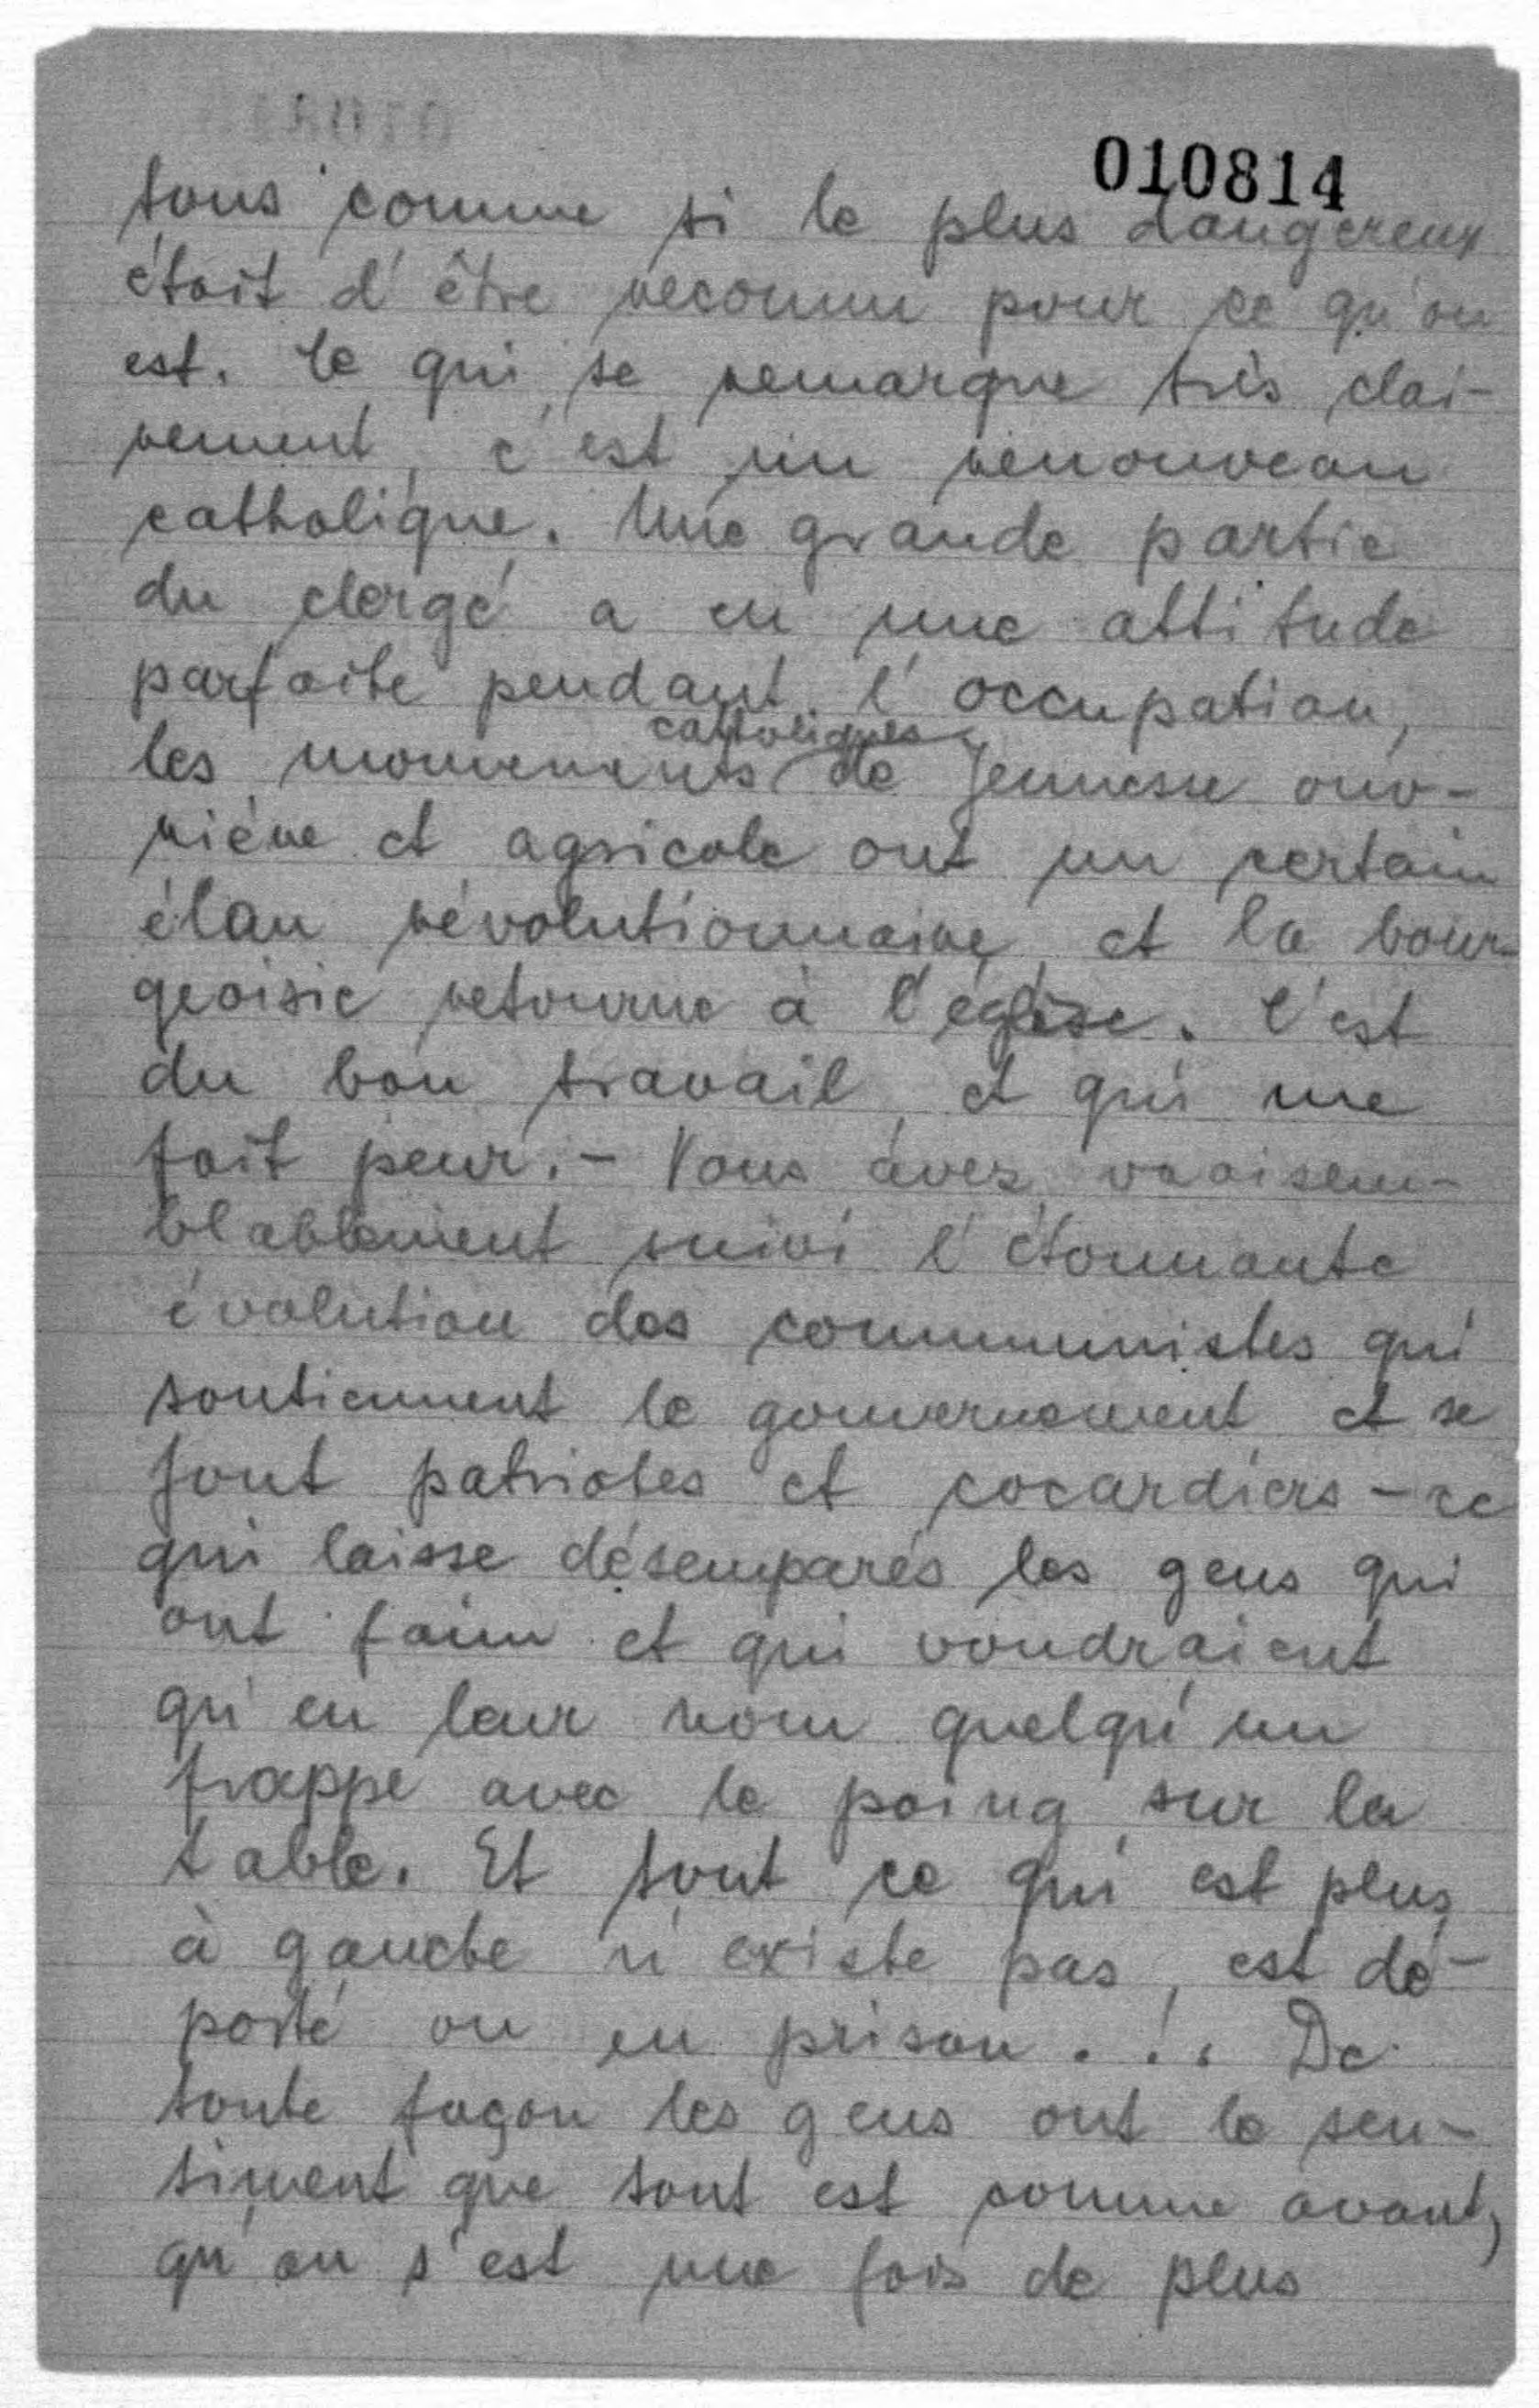 010814
tous comme si le plus dangereux
était d'être reconnu pour ce qu'on
est. Ce qui se remarque très clai-
rement, c'est un renouveau
catholique. Une grande partie
du clergé a eu une attitude
parfaite pendant l'occupation,
catholiques
les mouvements de Jeunesse ouv-
rière et agricole ont un certain
élan révolutionnaire, et la bour-
geoisie retourne à l'église. C'est
du bon travail, et qui me
fait peur. - Vous avez vraisem-
blablement suivi l'étonnante
évolution des communistes qui
soutiennent le gouvernement et se
font patriotes et cocardiers - ce
qui laisse désemparés les gens qui
ont faim et qui voudraient
qu'en leur nom quelqu'un
frappe avec le poing sur la
table. Et tout ce qui est plus
à gauche n'existe pas, est dé-
porté ou en prison . ! . De
toute façon les gens ont le sen-
timent que tout est comme avant,
qu'on s'est une fois de plus